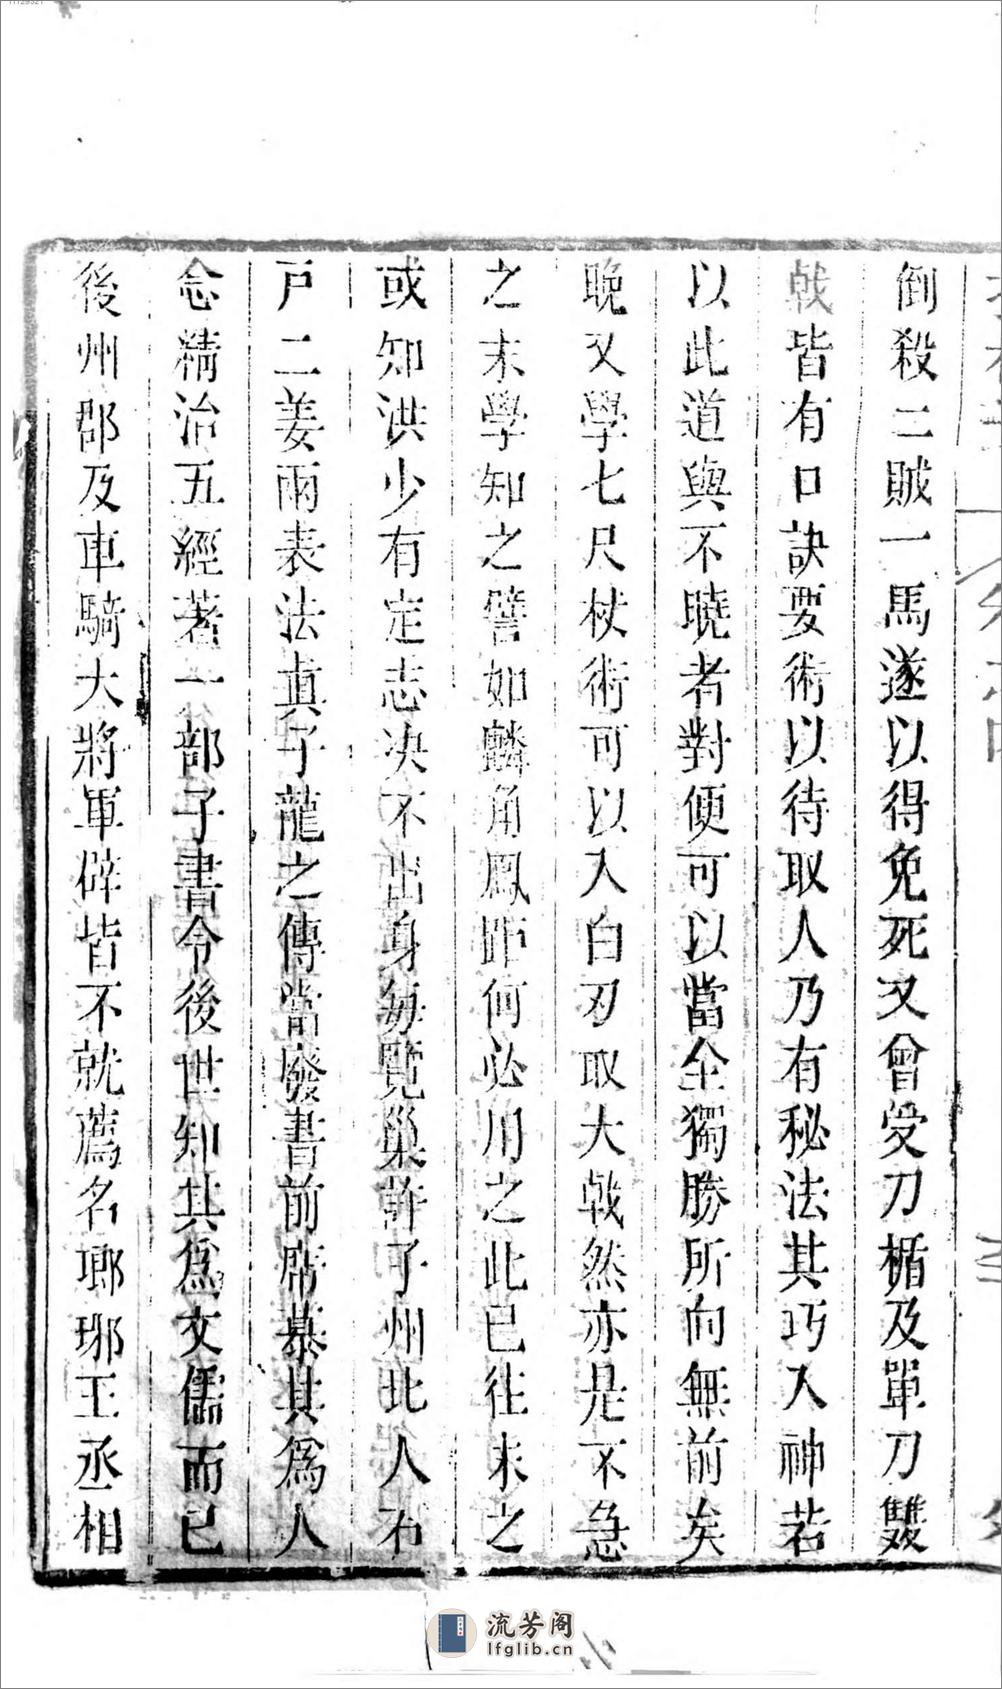 倒殺二賊一馬遂以得免死又曾受刀楯及單刀雙
戟皆有口訣要術以待取人乃有秘法其巧入神若
以此道與不曉者對便可以當全獨勝所向無前矣
晚又學七尺杖術可以入白刃取大戟然亦是不急
之末學知之譬如麟角鳳距何必用之此已往未之
或知洪少有定志决不出身每覽巢許子州北人石
戸二姜兩表法真子龍之傳嘗廢書前席慕其爲人
念精治五經著一部子書令後世知其爲文儒而已
後州郡及車騎大將軍辟皆不就薦名瑯琊王丞相
流芳阁
lfglib.cn